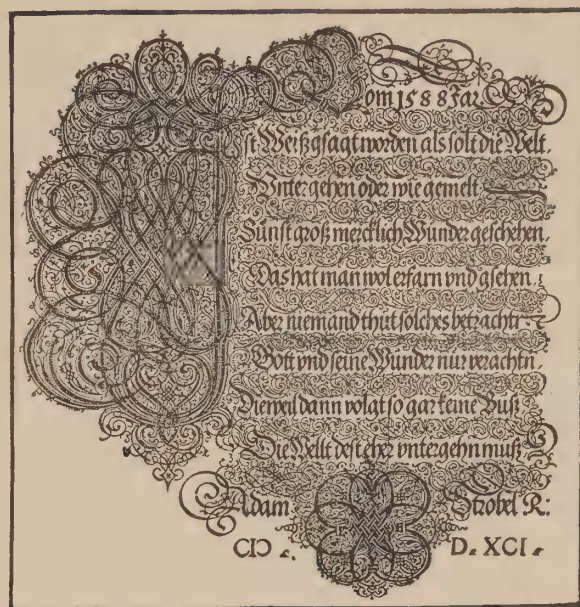 Vom 1588 Jar
Ist Weißgsagt worden als solt die Welt.
Vntergehen oder wie gemelt
Sunst groß mercklich Wunder geschehen.
Das hat man wol erfarn vnd gsehen.
Aber niemand thut solches betrachtn
Gott vnd seine Wunder nur verachtn.
Dieweil dann volgt so gar keine Buß
Die Wellt dest eher vntergehn muß
Adam Strobel R:
CIↃ. D. XCI.